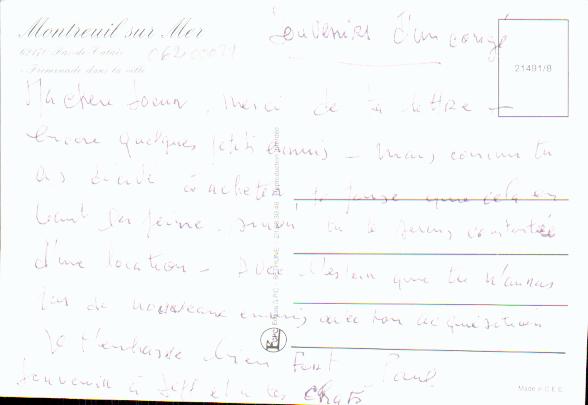 Montreuil sur Mer
62170 Pas de Calais
- Promenade dans la ville
Souvenirs d'un congé
21491/8
Ma chère soeur, merci de ta lettre -
encore quelques petits ennuis - mais comme tu
as décidé d'acheter, je pense que cela en
vaut la peine, sinon tu te serais contentée
d'une location - que tu n'auras
pas de nouveaux ennuis avec ton acquisition
Je t'embrasse bien fort Paul
Souvenir à et à tes chats
Made in C.E.E.